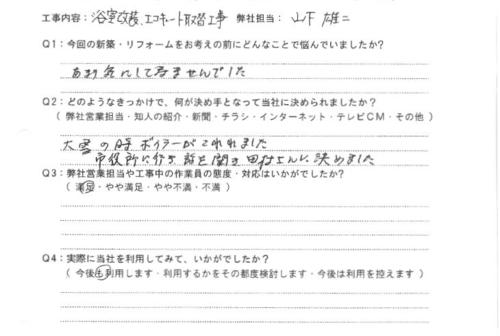 工事内容：浴室改装、エコキュート取替工事 弊社担当：山下 雄二
Q1：今回の新築・リフォームをお考えの前にどんなことで悩んでいましたか？
あまり気にして居ませんでした
Q2：どのようなきっかけで、何が決め手となって当社に決められましたか？
（ 弊社営業担当・知人の紹介・新聞・チラシ・インターネット・テレビCM・その他 ）
大雪の時ボイラーがこわれました
市役所に行き 話を聞き 田村さんに決めました
Q3：弊社営業担当や工事中の作業員の態度・対応はいかがでしたか？
（ 満足・やや満足・やや不満・不満 ）
Q4：実際に当社を利用してみて、いかがでしたか？
（ 今後も利用します・利用するかをその都度検討します・今後は利用を控えます ）